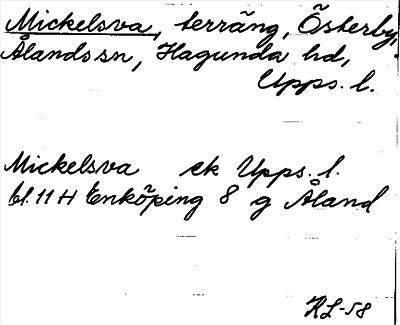 Mickelsva, terräng, Österby,
Ålands sn, Hagunda hd,
Upps. l.
Mickelsva ek Upps. l.
bl. 11 H Enköping 8 g Åland
HL-58